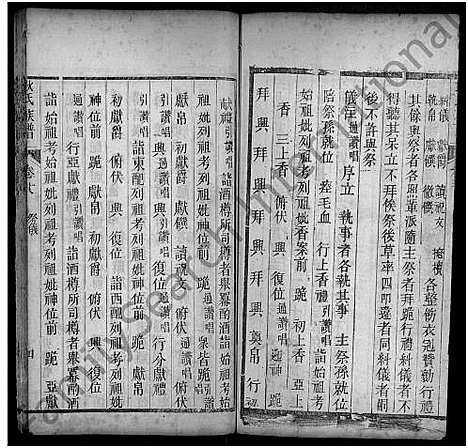 糾儀 獻爵 讀祝文 掩櫝
執帛 獻饌 徹饌 各整飭衣冠贊勷行禮
其餘與祭者各照輩派隨主祭者拜跪行禮糾儀者不
得聽其呆立不拜俟祭後草率四叩違者同糾儀者嗣
後不許與祭
儀注 通讚唱 序立 執事者各執其事 主祭孫就位
陪祭孫就位 瘞毛血 行上香禮 引讚唱 詣
始祖妣列祖考列祖妣香案前 跪 初上香 亞上
香 三上香 俯伏 興 復位 通讚唱 參神 跪
拜 興 拜 興 拜 興 拜 興 奠帛 行初
獻禮 引讚唱 詣酒樽所司樽者舉冪酌酒 詣始祖考始
祖妣列祖考列祖妣神位前 跪 通讚唱 衆皆跪 引讚唱
獻帛 初獻爵 獻饌 讀祝 俯伏 興 復位 通讚唱 行分獻禮
引讚唱 詣東配列祖考列祖妣神位前 跪 獻帛
初獻爵 俯伏 興 復位 詣西配列祖考列祖妣
神位前 跪 獻帛 初獻爵 俯伏 興 復位
通讚唱 行亞獻禮 引讚唱 詣酒樽所司樽者舉冪酌酒
詣始祖考始祖妣列祖考列祖妣神位前 跪 亞獻
氏族譜 卷首 祭儀 四